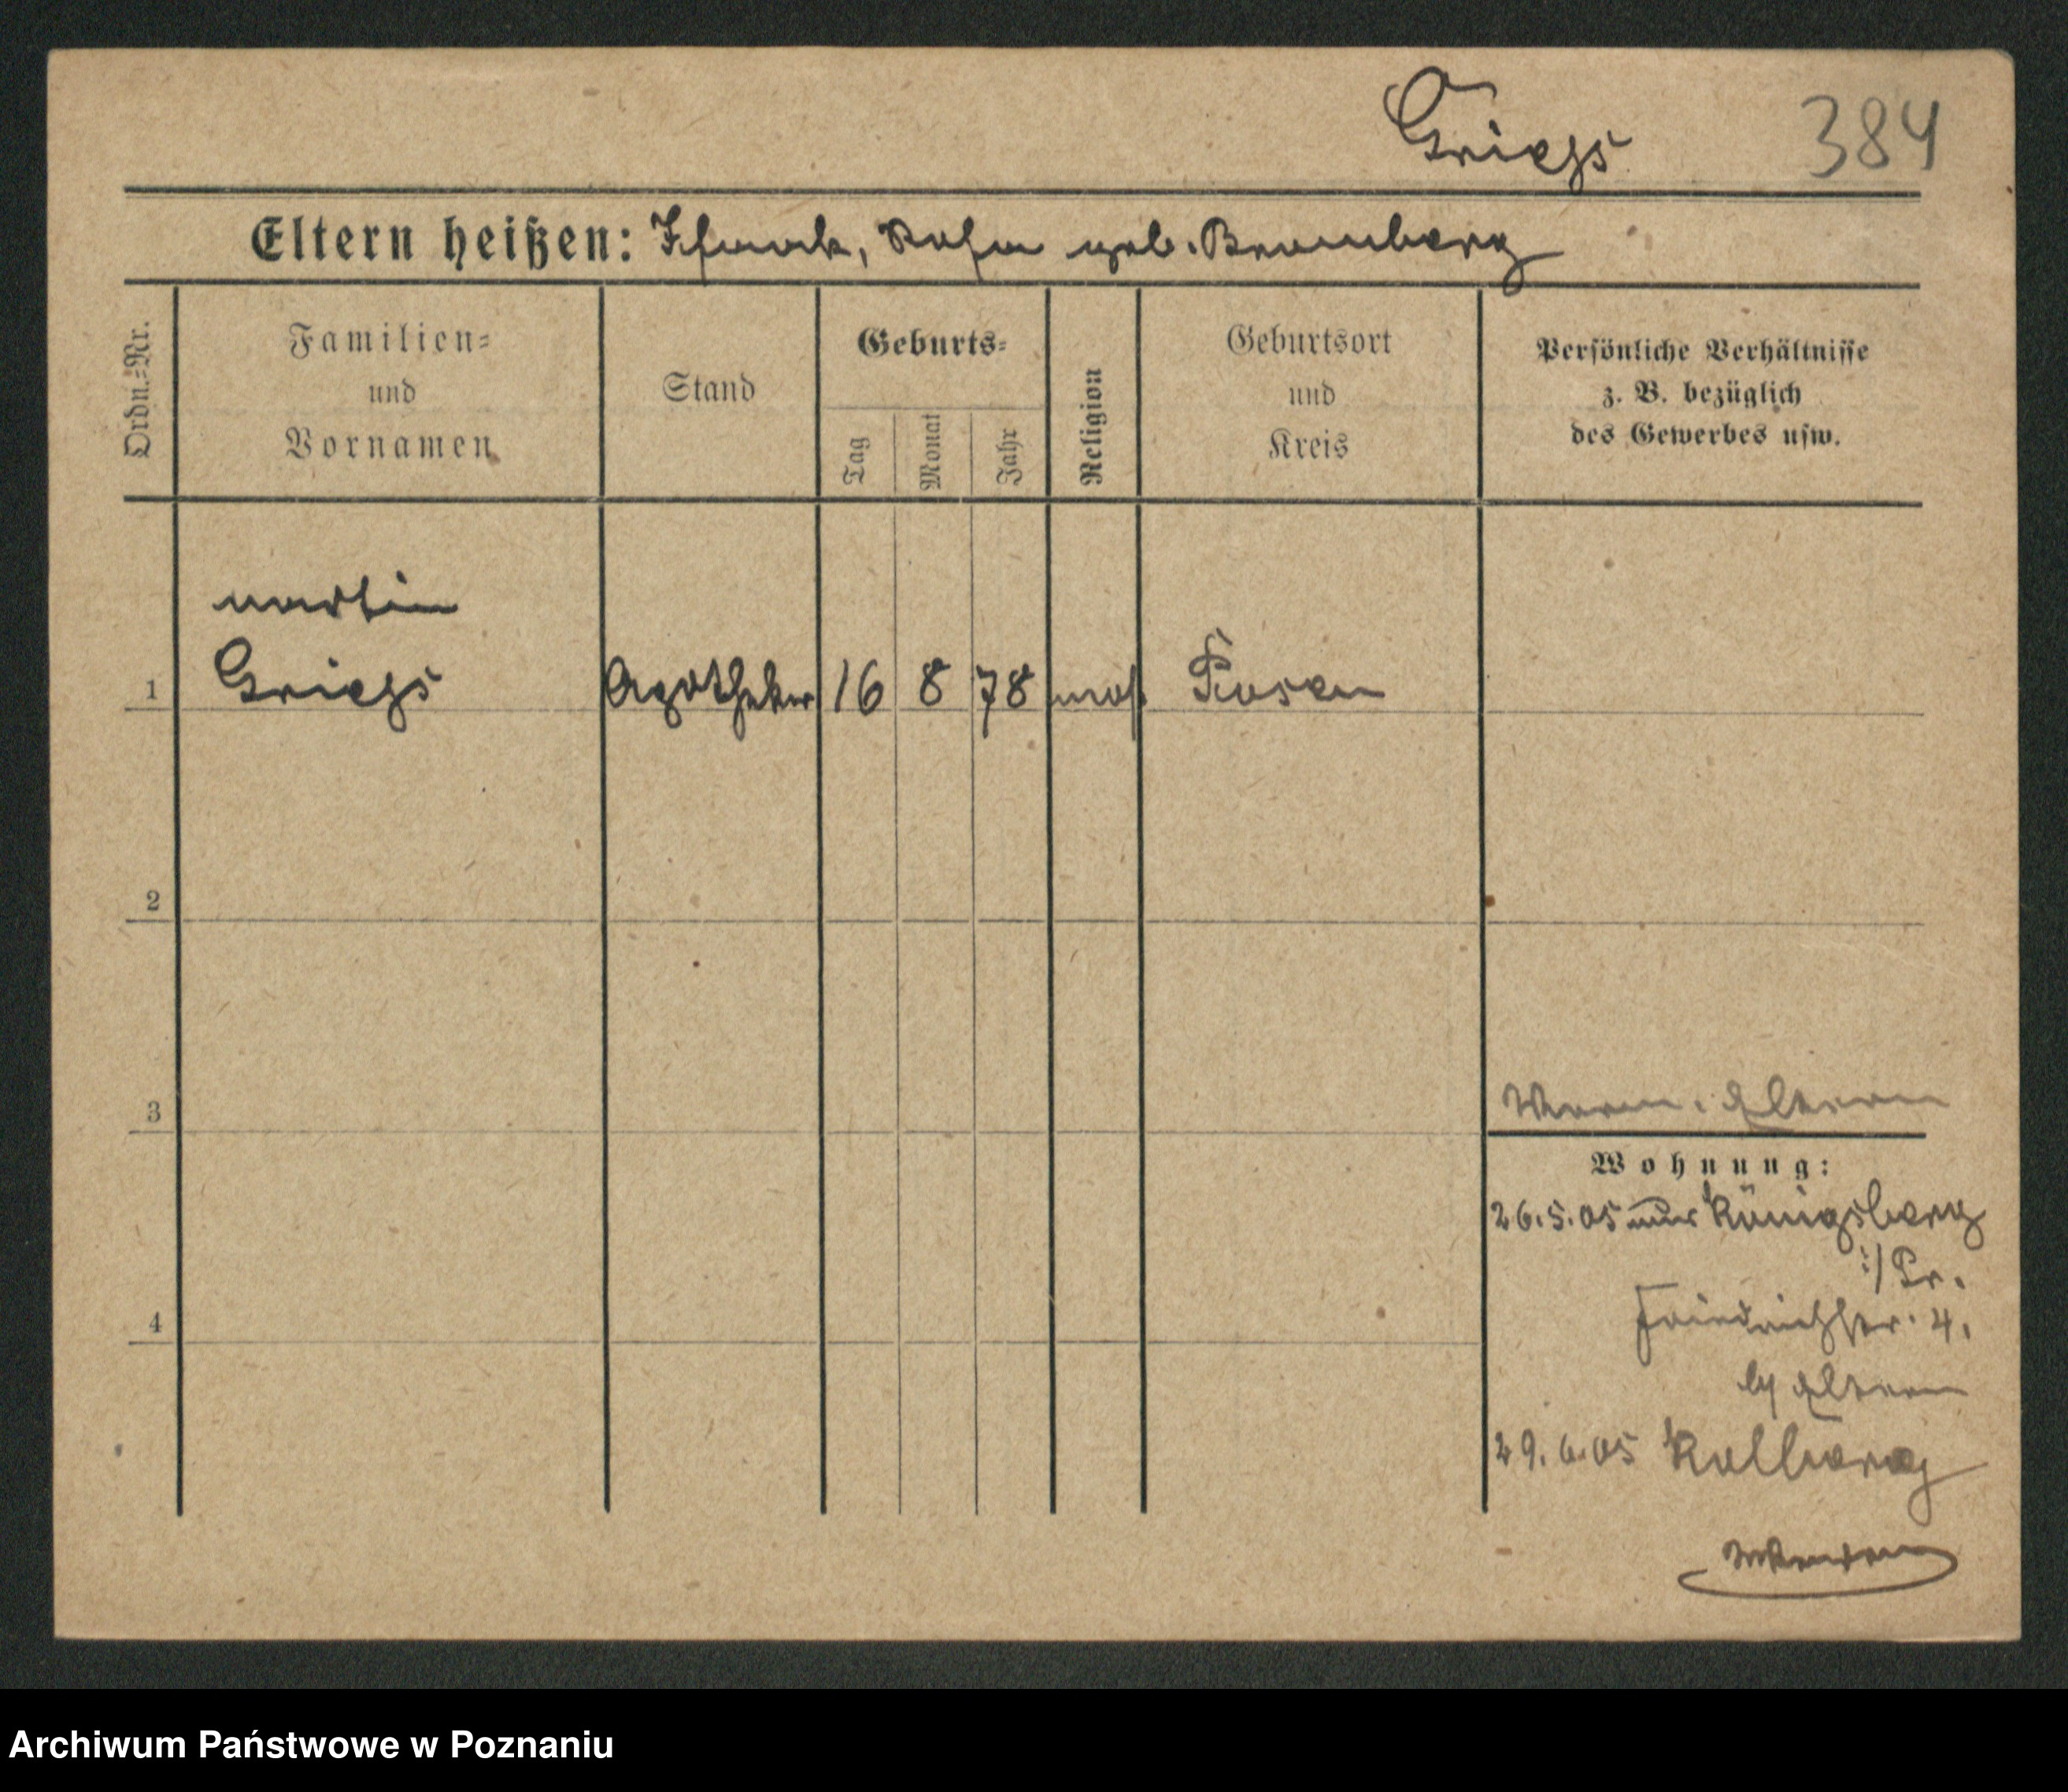 Griess 384
Eltern heißen: Isaack, Rosa geb. Bromberg
Ordn.-Nr.
Familien-
und
Vornamen
Stand
Geburts-
Tag
Monat
Jahr
Religion
Geburtsort
und
Kreis
Persönliche Verhältnisse
z. B. bezüglich
des Gewerbes usw.
Martin
1 Griess Apotheker 16 8 78 mos. Posen
2
3
Eltern
Wohnung:
26.5.05 Königsberg
i/Pr.
Friedrichstr. 4.
b/ Eltern
4
29.6.05 Kolberg
Archiwum Państwowe w Poznaniu